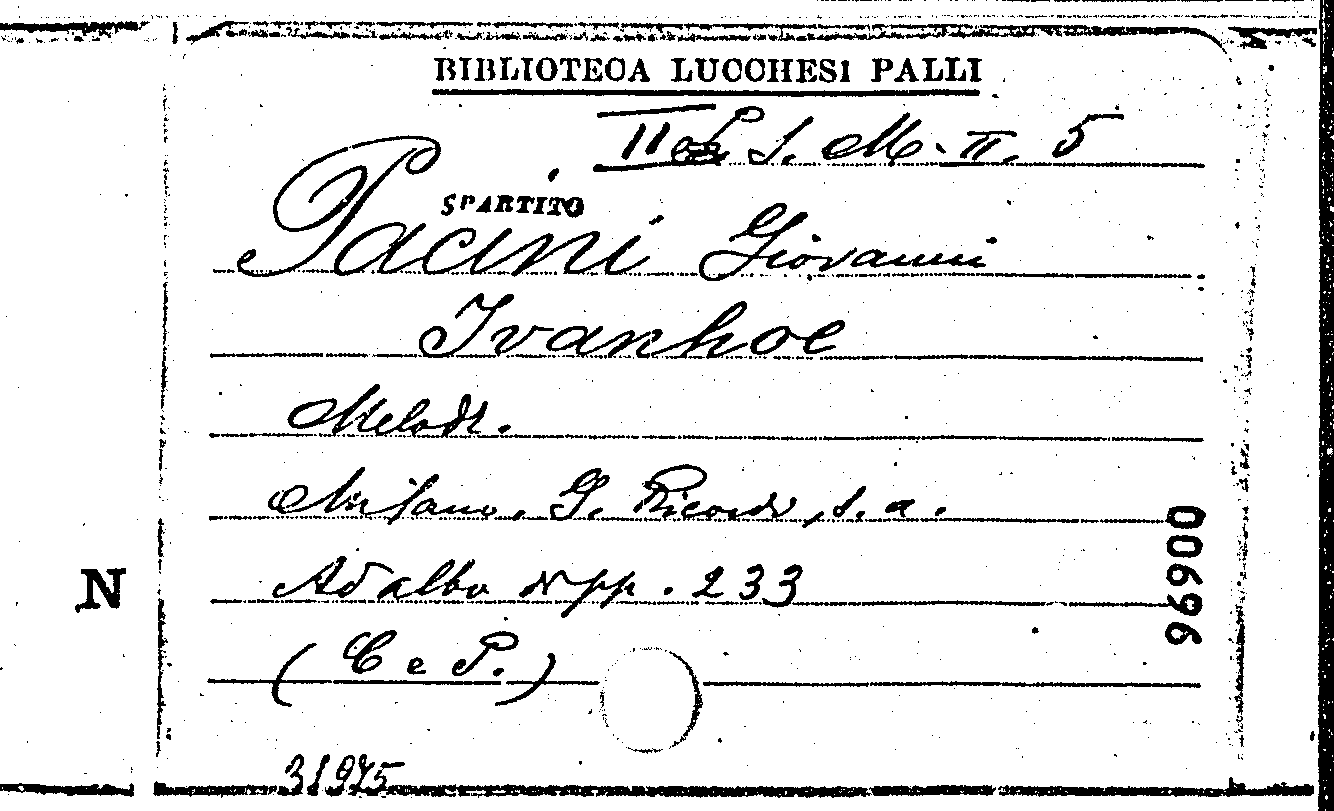 BIBLIOTECA LUCCHESI PALLI
II S. M. II. 5
SPARTITO
Pacini Giovanni
Ivanhoe
Melodr.
Milano, G. Ricordi, s. a.
N
Ad albo di pp. 233
00696
(C e P.)
31975